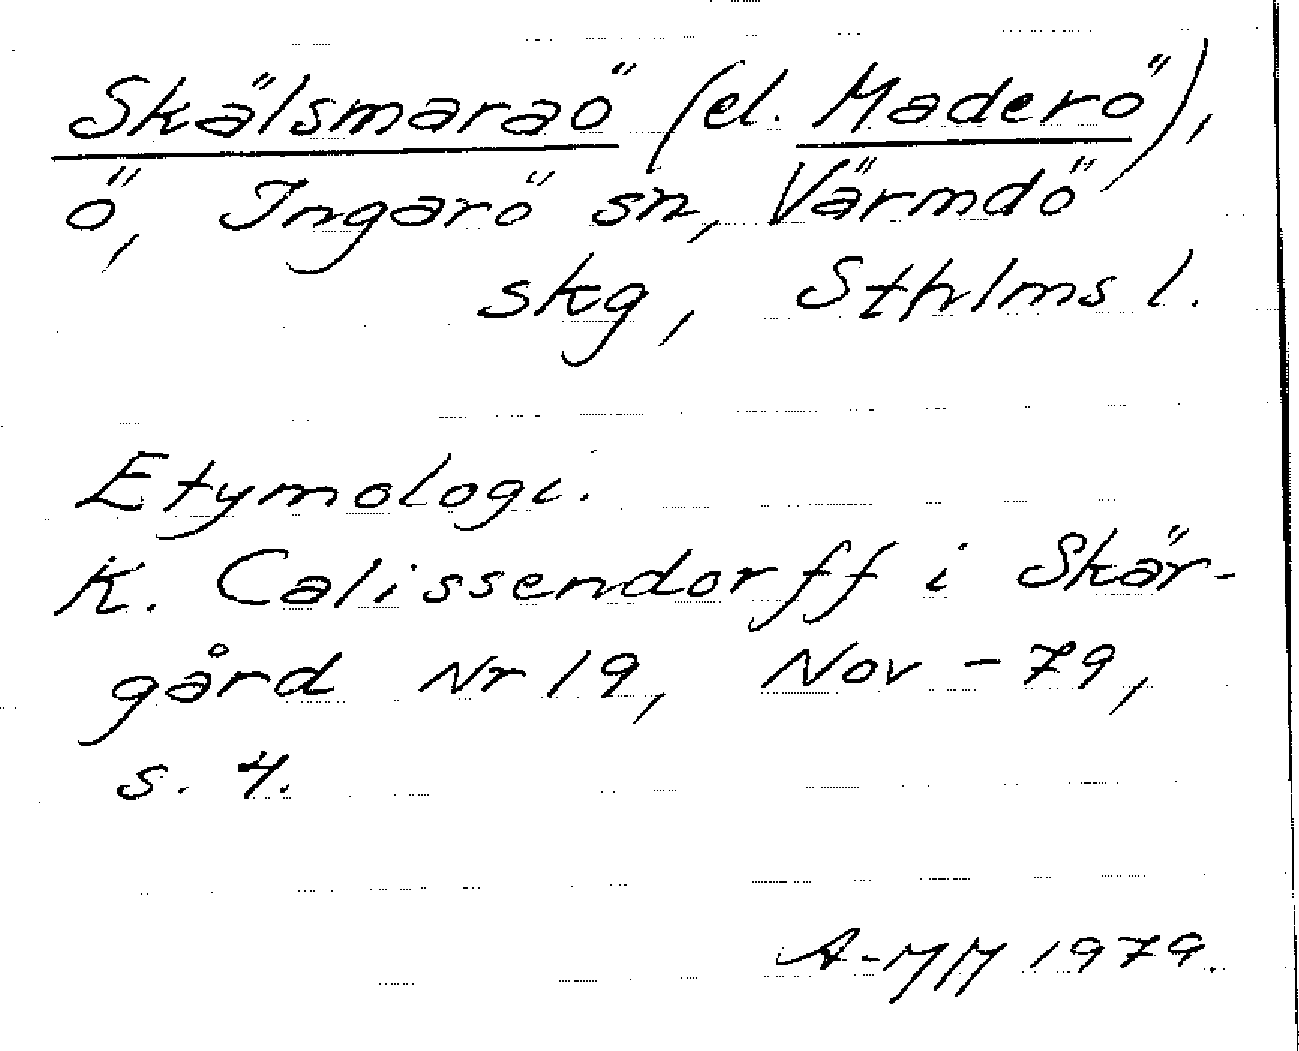 Skälsmaraö (el. Maderö),
ö, Ingarö sn, Värmdö
skg, Sthlms l.
Etymologi.
K. Calissendorff i Skär-
gård Nr 19, Nov -79,
s. 4.
A-MM 1979.